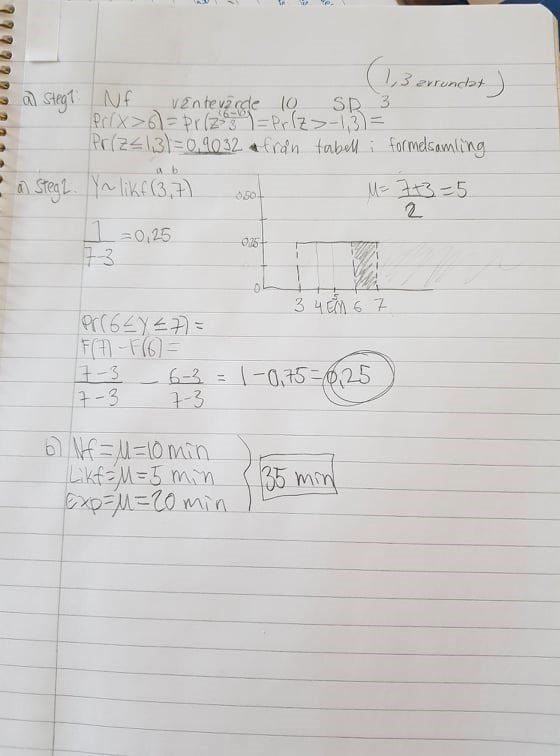 (1,3 avrundat)
a) steg1 Nf väntevärde 10 SD 3
Pr(X>6)=Pr(Z> (6-10)/3)=Pr(Z>-1,3)=
Pr(Z≤1,3)=0,9032 från tabell i formelsamling
a b
a) steg2. Y~likf(3,7) 0,50 μ= 7+3/2 =5
1/7-3 =0,25 0,25
0
3 4 5 6 7
Pr(6≤Y≤7)=
F(7)-F(6)=
7-3/7-3 - 6-3/7-3 = 1-0,75=0,25
b) Nf=μ=10 min
Likf=μ=5 min } 35 min
Exp=μ=20 min